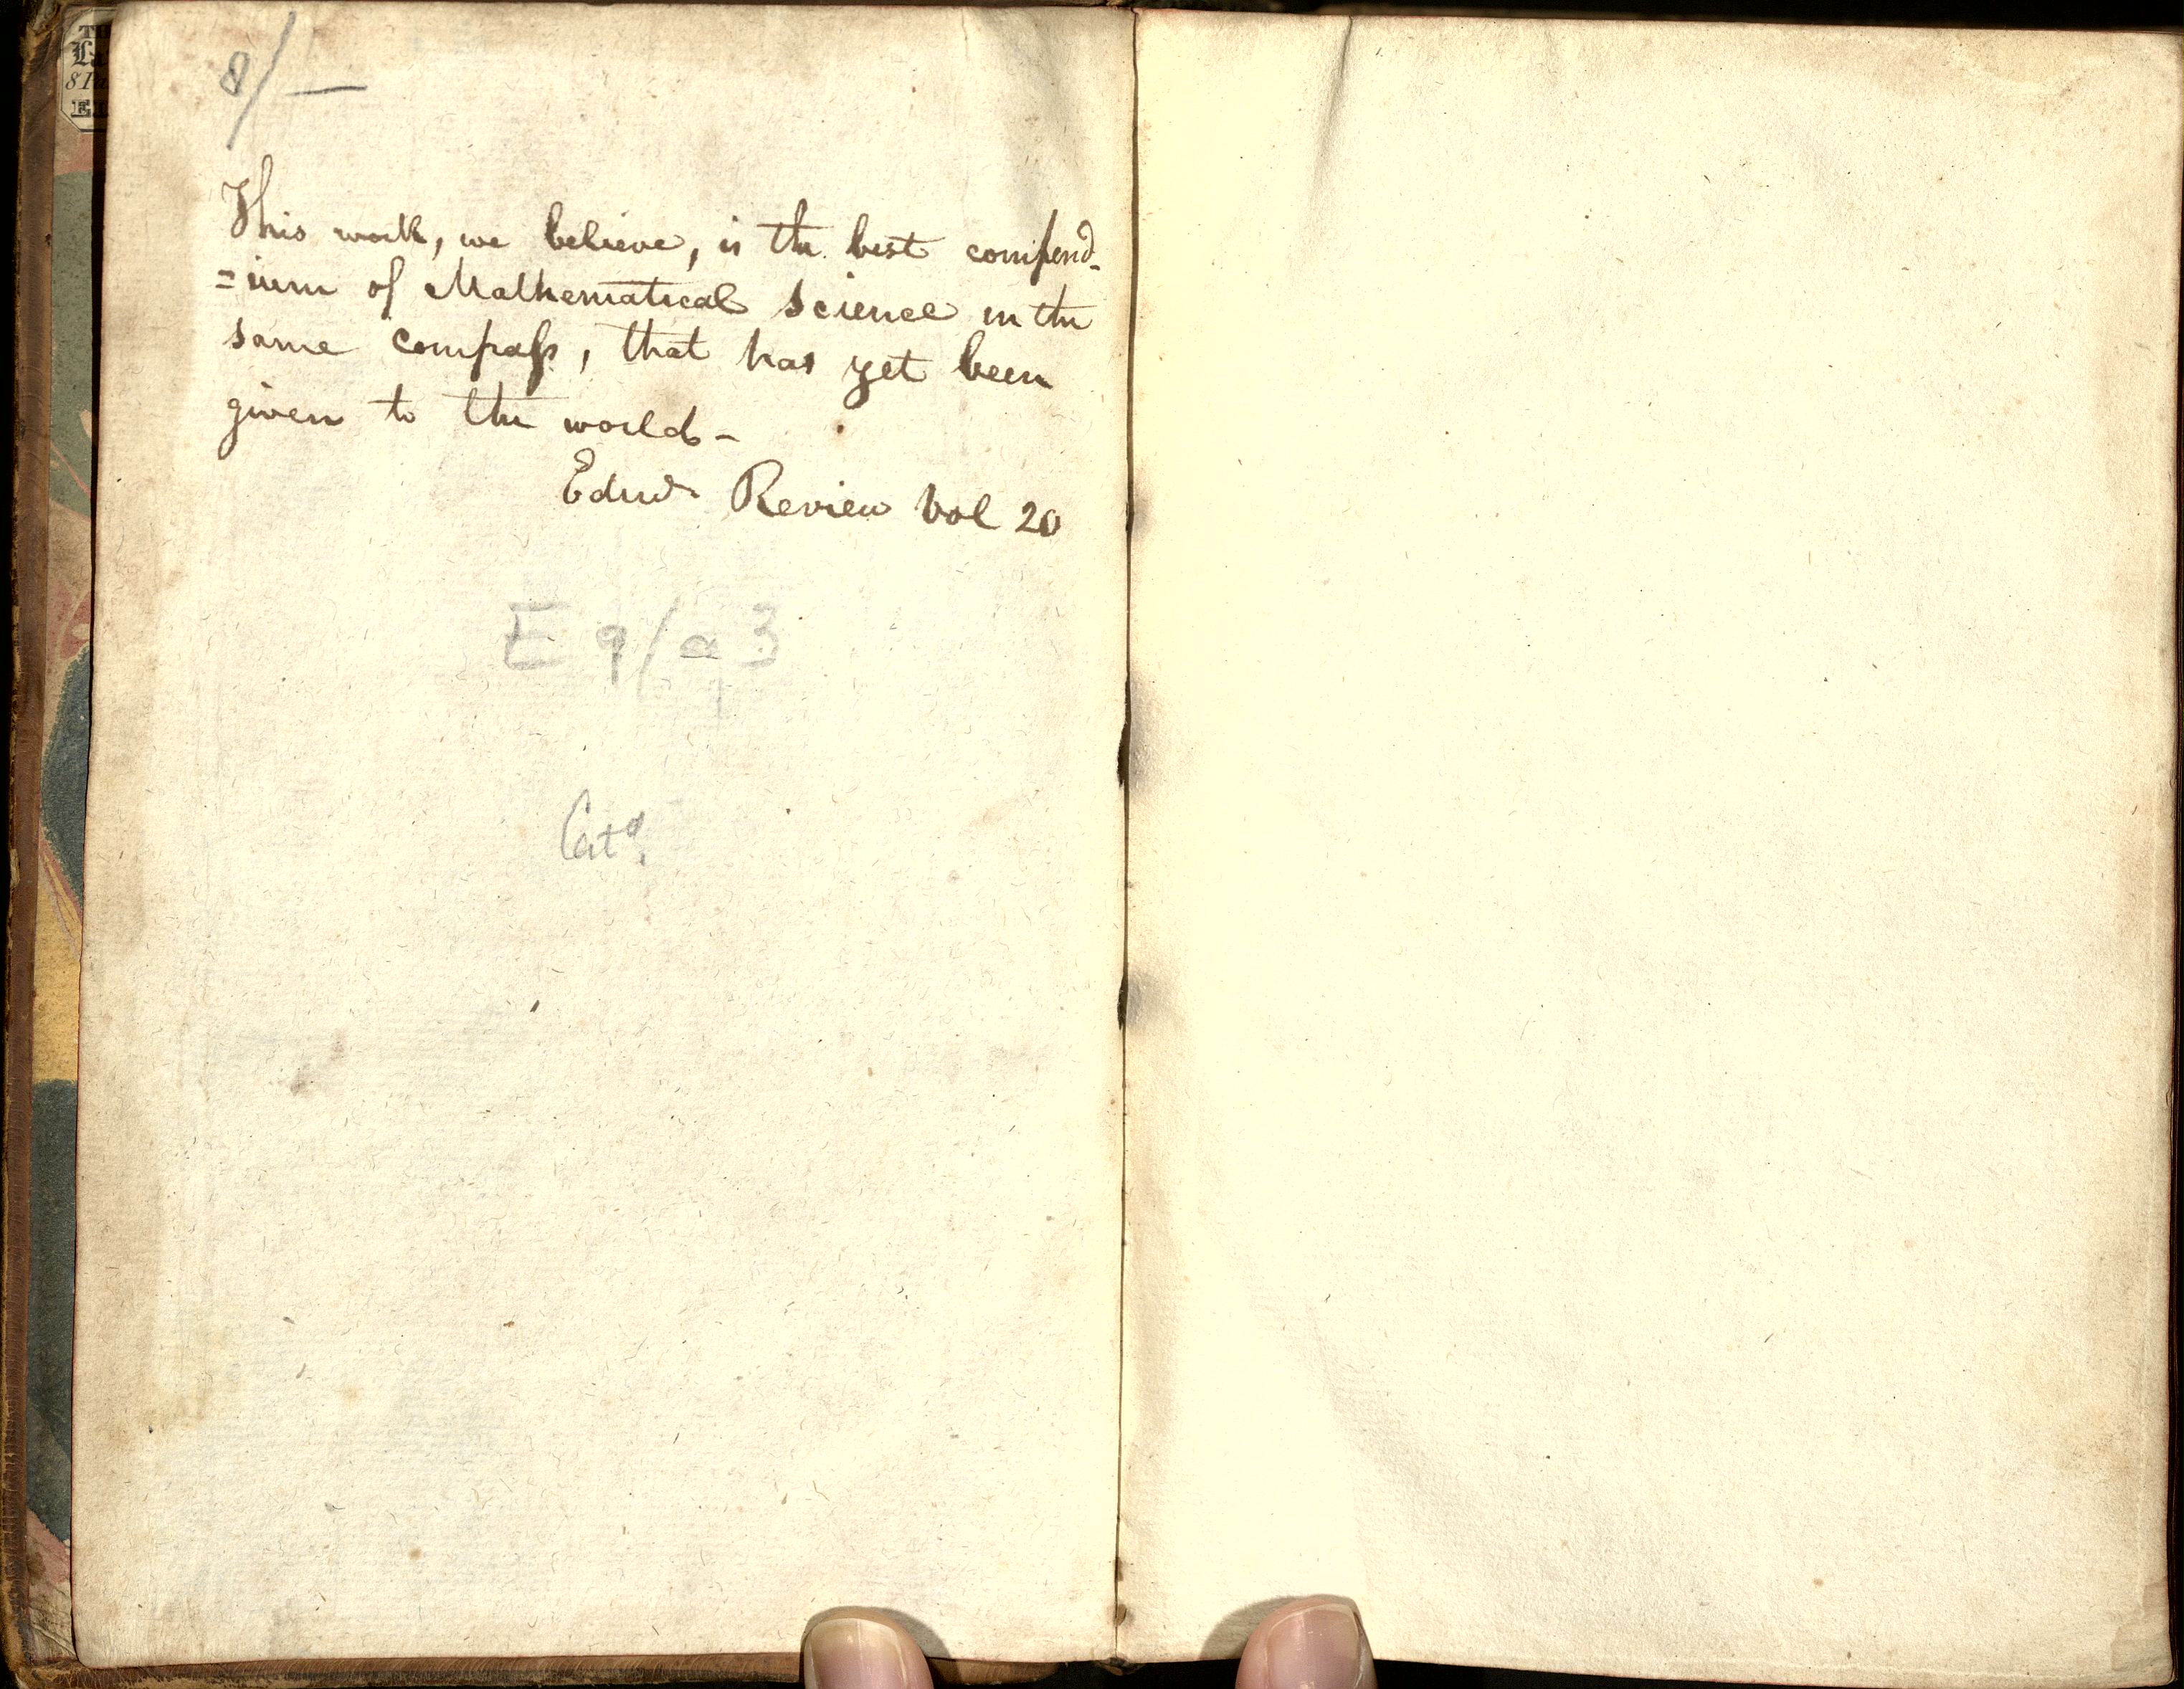 8/—
This work, we believe, is the best compend-
=ium of Mathematical Science in the
same compaſs, that has yet been
given to the world -
Edinr Review Vol 20
E 9/a 3
Catd.